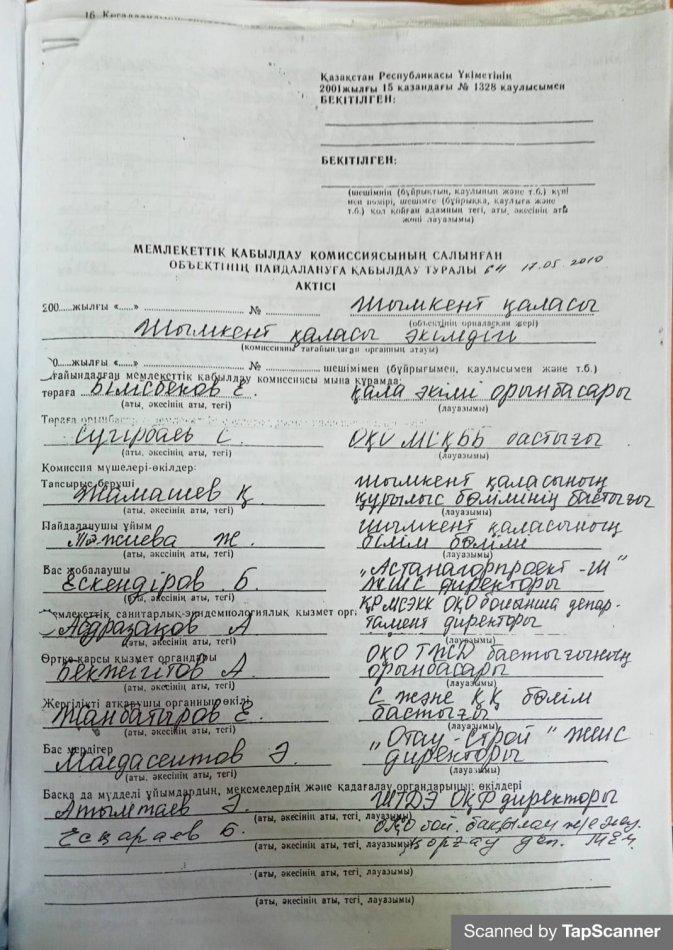 16
Қазақстан Республикасы Үкіметінің
2001жылғы 15 қазандағы № 1328 қаулысымен
БЕКІТІЛГЕН:
БЕКІТІЛГЕН:
(шешімнің (бұйрықтың, қаулының және т.б.) күні
мен нөмірі, шешімге (бұйрыққа, қаулыға және
т.б.) қол қойған адамның тегі, аты, әкесінің аты
және лауазымы)
МЕМЛЕКЕТТІК ҚАБЫЛДАУ КОМИССИЯСЫНЫҢ САЛЫНҒАН
ОБЪЕКТІНІҢ ПАЙДАЛАНУҒА ҚАБЫЛДАУ ТУРАЛЫ 64 17.05.2010
АКТІСІ
200.....жылғы «......» ........................ № .................. Шымкент қаласы
(объектінің орналасқан жері)
Шымкент қаласы әкімдігі
(комиссияны тағайындаған органның атауы)
0.....жылғы «......» ........................ № .................. шешімімен (бұйрығымен, қаулысымен және т.б.)
тағайындалған мемлекеттік қабылдау комиссиясы мына құрамда:
төраға Е. қала әкімі орынбасары
(аты, әкесінің аты, тегі) (лауазымы)
Төраға
Сүгірбаев С. ОҚО МСҚББ бастығы
(аты, әкесінің аты, тегі) (лауазымы)
Комиссия мүшелері-өкілдер:
Тапсырыс беруші Шымкент қаласының
Жамашев Қ құрылыс бөлімінің бастығы
(аты, әкесінің аты, тегі) (лауазымы)
Пайдаланушы ұйым Шымкент қаласының
Ж. білім бөлімі
(аты, әкесінің аты, тегі) (лауазымы)
Бас жобалаушы „Астанагорпроект-Ш"
Ескендіров Б. ЖШС директоры
(аты, әкесінің аты, тегі) (лауазымы)
Мемлекеттік санитарлық-эпидемиологиялық қызмет орг ҚРМСЭКК ОҚО бойынша депар-
Абдразақов А тамент директоры
(аты, әкесінің аты, тегі) (лауазымы)
Өртке қарсы қызмет органдары ОҚО ТЖД бастығының
Бекжігітов А. орынбасары
(аты, әкесінің аты, тегі) (лауазымы)
Жергілікті атқарушы органның өкілі С және ҚҚ бөлім
Жанбатыров Е. бастығы
(аты, әкесінің аты, тегі) (лауазымы)
Бас мердігер „Отау-Строй" ЖШС
Молдасеитов Ә. директоры
(аты, әкесінің аты, тегі) (лауазымы)
Басқа да мүдделі ұйымдардың, мекемелердің және қадағалау органдарының өкілдері
Атымтаев Ә. ОҚФ директоры
(аты, әкесінің аты, тегі, лауазымы)
Есқараев Б. ОҚО бой. бақылау және әлеу.
(аты, әкесінің аты, тегі, лауазымы) қорғау деп.
(аты, әкесінің аты, тегі, лауазымы)
(аты, әкесінің аты, тегі, лауазымы)
Scanned by TapScanner